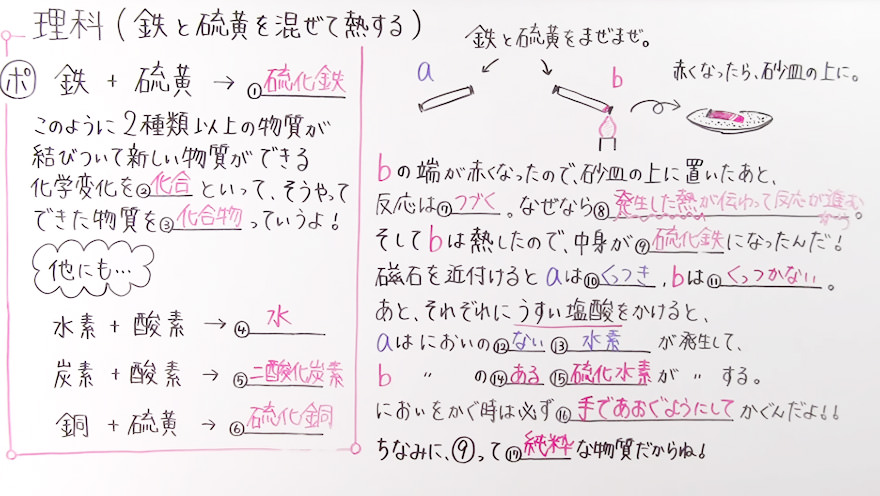 理科(鉄と硫黄を混ぜて熱する)
ポ 鉄 + 硫黄 → ①硫化鉄
このように2種類以上の物質が
結びついて新しい物質ができる
化学変化を②化合といって、そうやって
できた物質を③化合物っていうよ!
他にも…
水素 + 酸素 → ④水
炭素 + 酸素 → ⑤二酸化炭素
銅 + 硫黄 → ⑥硫化銅
鉄と硫黄をまぜまぜ。
a
b
赤くなったら、砂皿の上に。
bの端が赤くなったので、砂皿の上に置いたあと、
反応は⑦つづく。なぜなら⑧発生した熱が伝わって反応が進むから。
そしてbは熱したので、中身が⑨硫化鉄になったんだ!
磁石を近付けるとaは⑩くっつき、bは⑪くっつかない。
あと、それぞれにうすい塩酸をかけると、
aはにおいの⑫ない⑬水素が発生して、
b 〃 の⑭ある⑮硫化水素が 〃 する。
においをかぐ時は必ず⑯手であおぐようにしてかぐんだよ!!
ちなみに、⑨って⑰純粋な物質だからね!